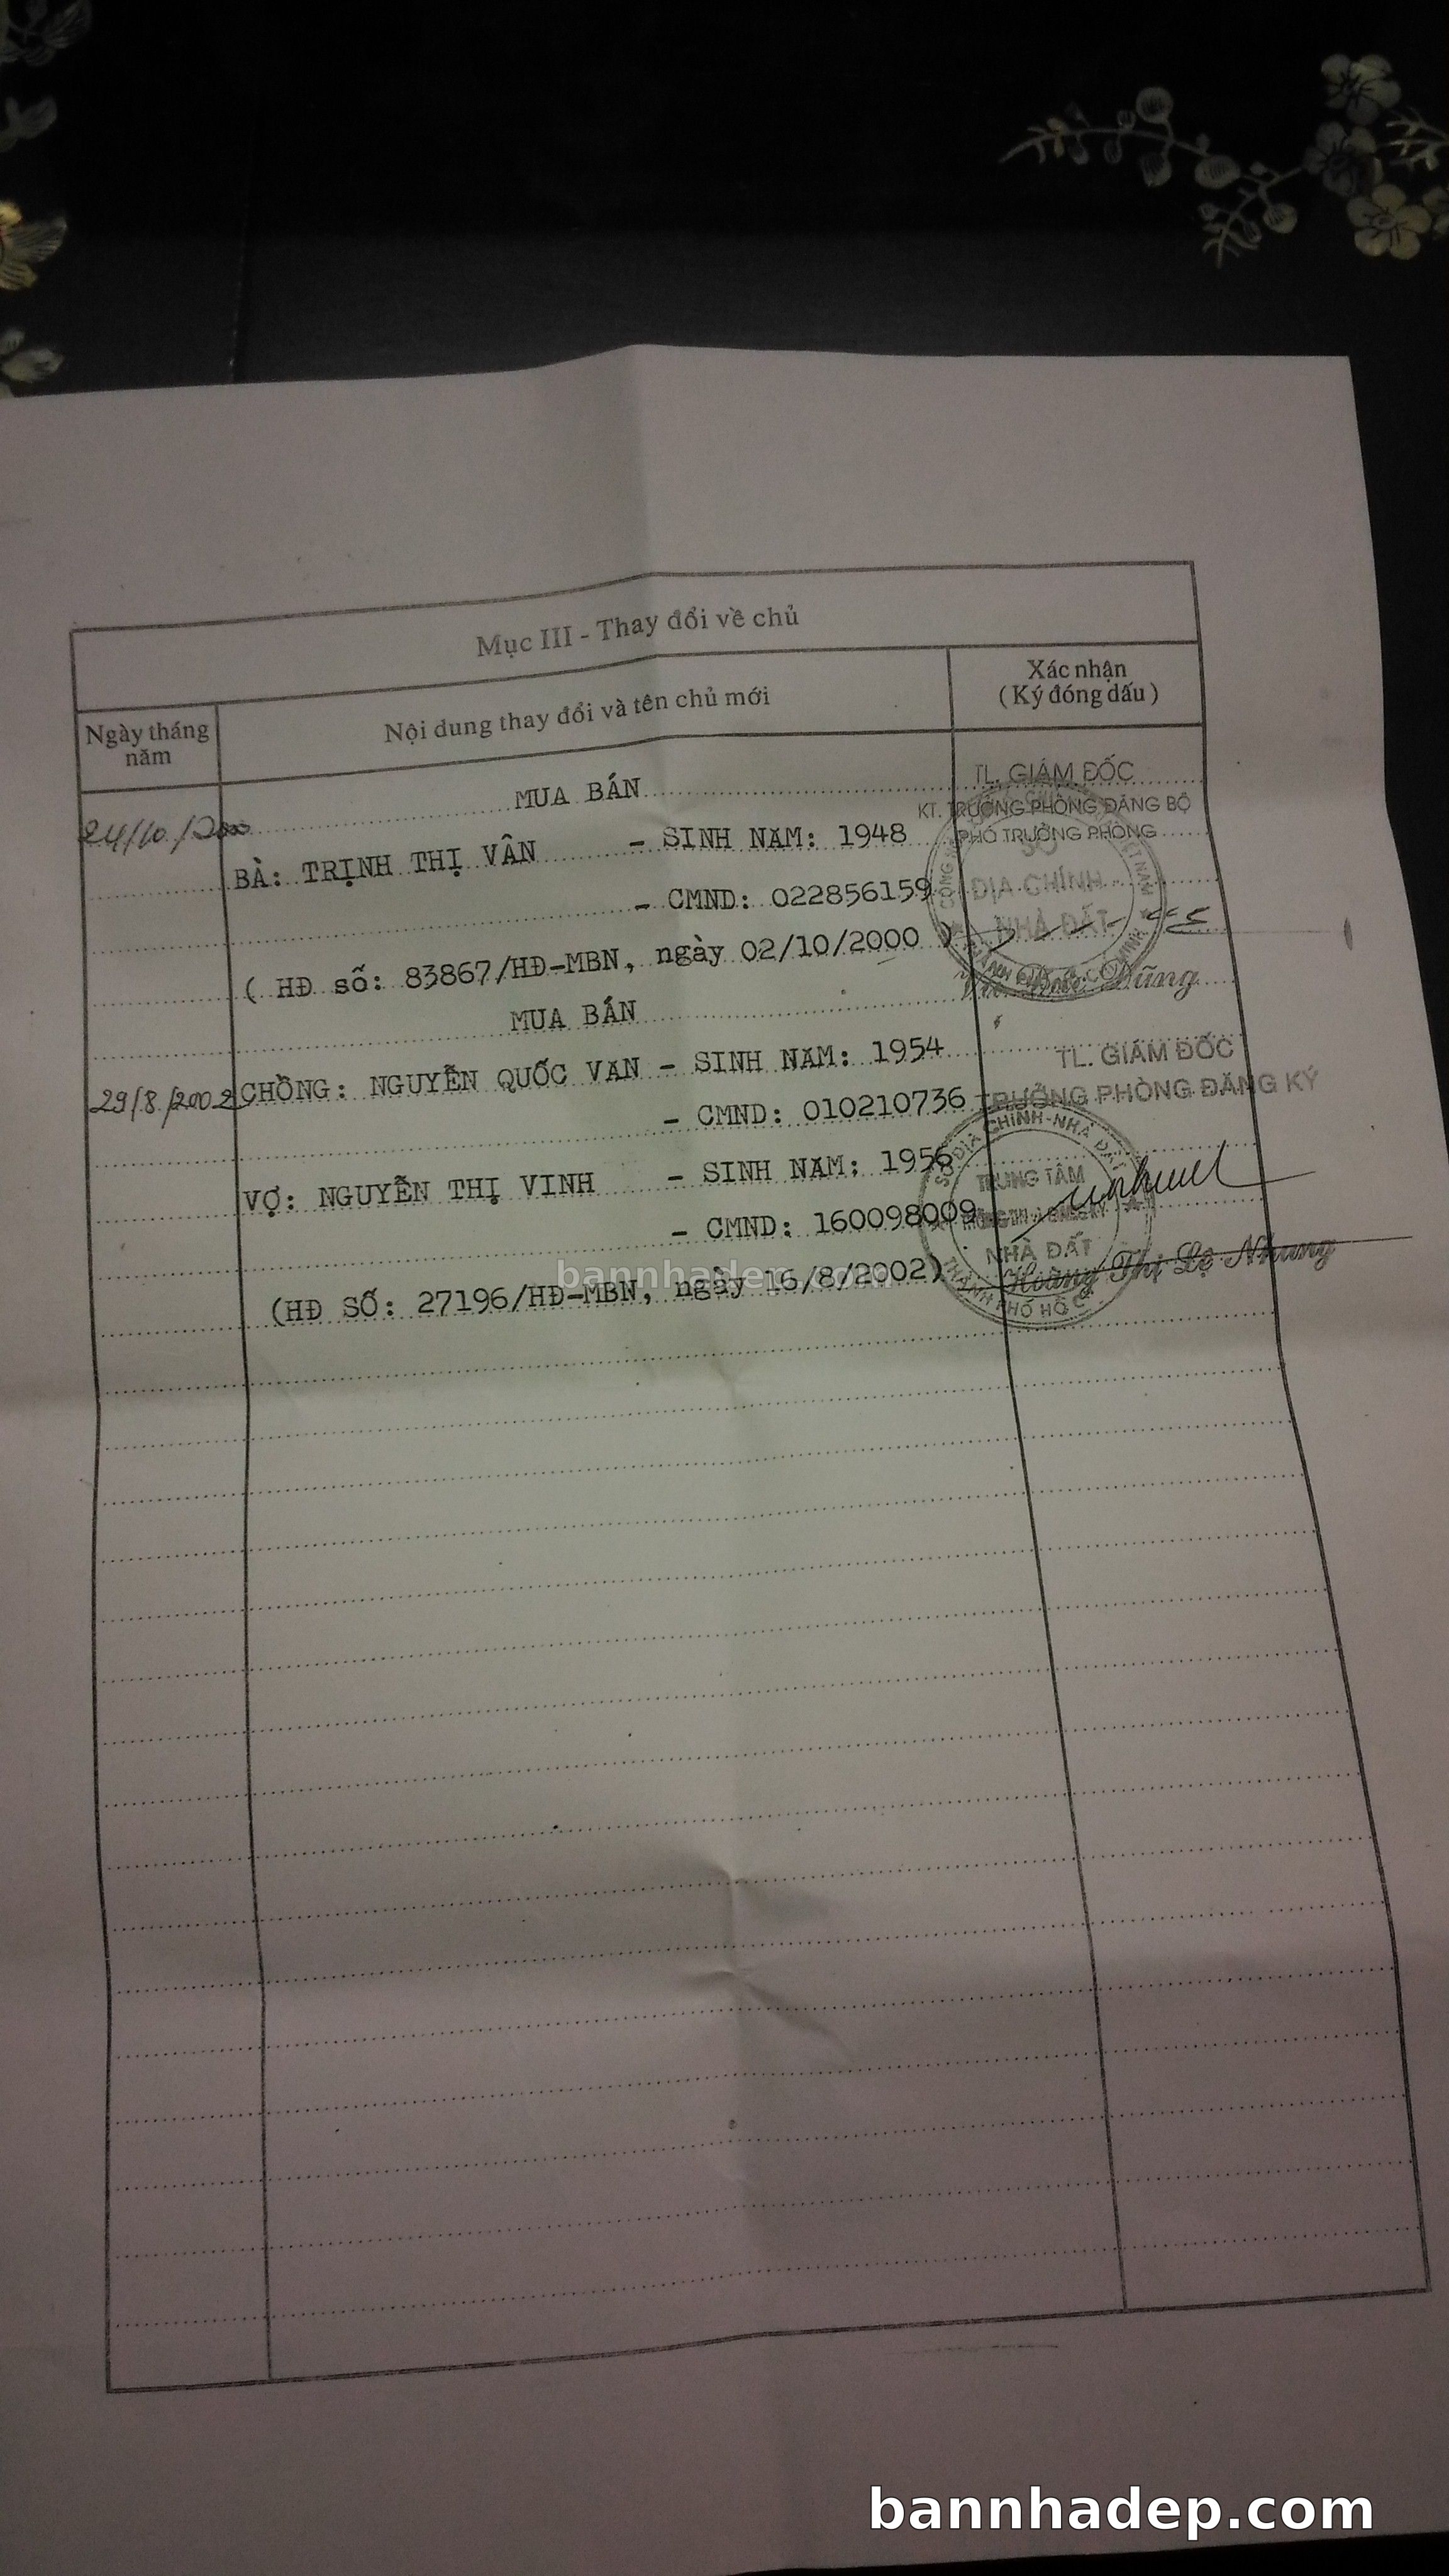 Mục III - Thay đổi về chủ
Ngày tháng năm
Nội dung thay đổi và tên chủ mới
Xác nhận
( Ký đóng dấu )
24/10/2000
MUA BÁN
BÀ: TRỊNH THỊ VÂN - SINH NAM: 1948
- CMND: 022856159
( HĐ số: 83867/HĐ-MBN, ngày 02/10/2000 )
TL. GIÁM ĐỐC
KT. TRƯỞNG PHÒNG ĐĂNG BỘ
PHÓ TRƯỞNG PHÒNG
SỞ
ĐỊA CHÍNH
NHÀ ĐẤT
Dũng
MUA BÁN
29/8/2002
CHỒNG: NGUYỄN QUỐC VAN - SINH NAM: 1954
- CMND: 010210736
VỢ: NGUYỄN THỊ VINH - SINH NAM: 1956
- CMND: 160098009
(HĐ SỐ: 27196/HĐ-MBN, ngày 16/8/2002)
TL. GIÁM ĐỐC
TRƯỞNG PHÒNG ĐĂNG KÝ
SỞ ĐỊA CHÍNH-NHÀ ĐẤT
TRUNG TÂM
NHÀ ĐẤT
THÀNH PHỐ HỒ C
Hoàng Thị Lệ Nhung
bannhadep.com
bannhadep.com